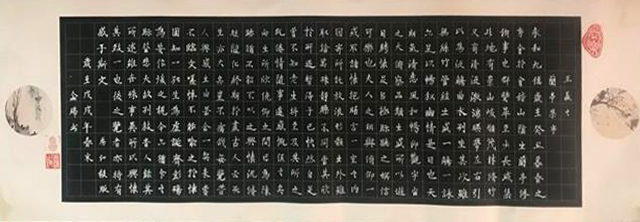 王羲之
蘭亭集序
永和九年歲在癸丑暮春之
初會於會稽山陰之蘭亭脩
禊事也群賢畢至少長咸集
此地有崇山峻嶺茂林脩竹
又有清流激湍映帶左右引
以為流觴曲水列坐其次雖
無絲竹管絃之盛一觴一詠
亦足以暢敘幽情是日也天
朗氣清惠風和暢仰觀宇宙
之大俯察品類之盛所以遊
目騁懷足以極視聽之娛信
可樂也夫人之相與俯仰一
世或取諸懷抱晤言一室之內或
因寄所託放浪形骸之外雖
趣舍萬殊靜躁不同當其欣
於所遇暫得於己快然自足
曾不知老之將至及其所之
既倦情隨事遷感慨係之矣
向之所欣俛仰之間已為陳
跡猶不能不以之興懷況脩
短隨化終期於盡古人云死
生亦大矣豈不痛哉每覽昔
人興感之由若合一契未嘗
不臨文嗟悼不能喻之於懷
固知一死生為虛誕齊彭殤
為妄作後之視今亦猶今之
視昔悲夫故列敘時人錄其
所述雖世殊事異所以興懷
其致一也後之覽者亦將有
感於斯文
歲在戊戌年春